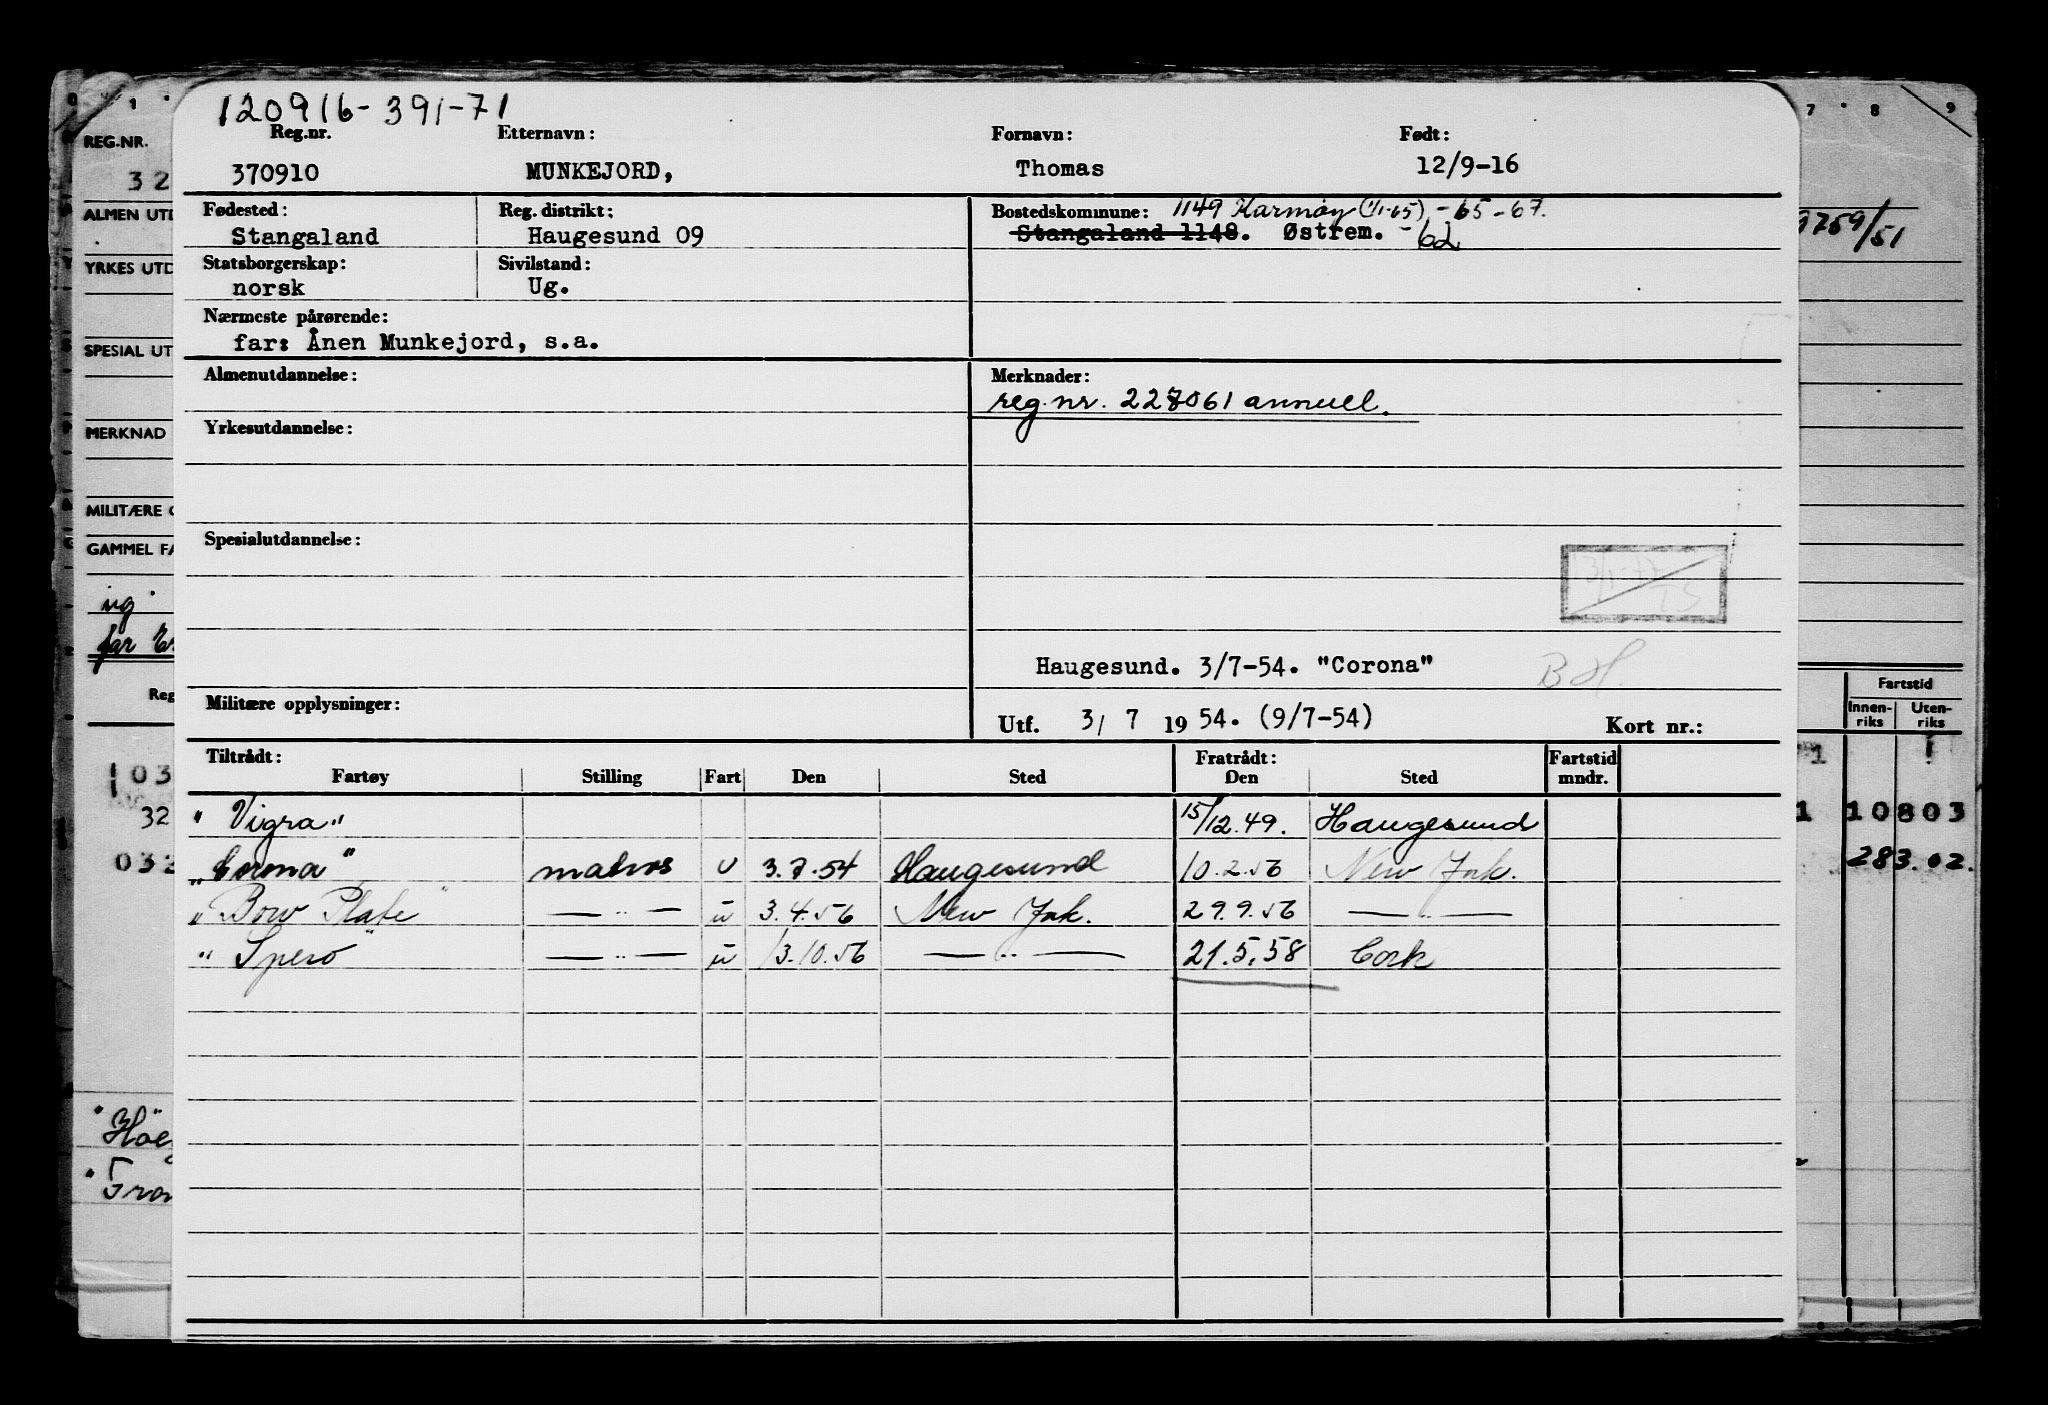 120916-391-71
Reg.nr. Etternavn: Fornavn: Født:
370910 MUNKEJORD, Thomas 12/9-16
Fødested: Reg. distrikt: Bostedskommune: 1149 Karmøy (1/1-65) -65-67.
Stangaland Haugesund 09 Stangaland 1148. Østrem. -62
Statsborgerskap: Sivilstand:
norsk Ug.
Nærmeste pårørende:
far: Ånen Munkejord, s.a.
Almenutdannelse: Merknader:
reg.nr. 227061 annuel.
Yrkesutdannelse:
Spesialutdannelse:
Haugesund. 3/7-54. "Corona" B H.
Militære opplysninger:
Utf. 3/ 7 19 54. (9/7-54) Kort nr.:
Tiltrådt: Fratrådt: Fartstid
Fartøy Stilling Fart Den Sted Den Sted mndr.
"Vigra" 15/12.49. Haugesund
"Corona" matros u 3.7.54 Haugesund 10.2.56 New York.
"Bow Plate" —"— u 3.4.56 New York. 29.9.56 —"—
"Spero" —"— u 13.10.56 —"— 21.5.58 Cork
REG.NR.
32
ALMEN UTD
YRKES UTD
SPESIAL UT
MERKNAD
MILITÆRE
GAMMEL FA
ug
far
Reg
103
32
032
"Höe
"Fran
7 8 9
9759/51
Fartstid
Innen-riks Uten-riks
1
1 10803
283.02.